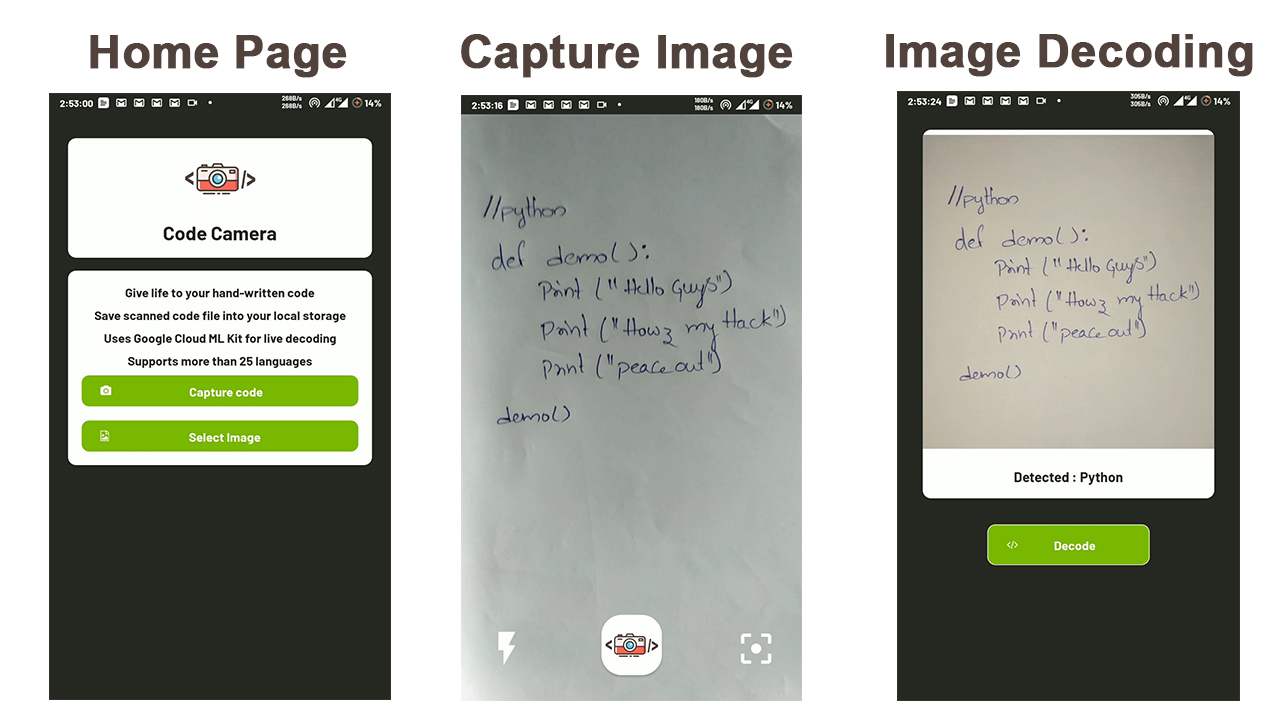 Home Page
2:53:00 268B/s 268B/s 4G 14%
Code Camera
Give life to your hand-written code
Save scanned code file into your local storage
Uses Google Cloud ML Kit for live decoding
Supports more than 25 languages
Capture code
Select Image
Capture Image
2:53:16 180B/s 180B/s 4G 14%
//python
def demo():
Print ("Hello Guys")
Print ("Howz my Hack")
Print ("peace out")
demo()
</>
Image Decoding
2:53:24 305B/s 305B/s 4G 14%
//python
def demo():
Print ("Hello Guys")
Print ("Howz my Hack")
Print ("peace out")
demo()
Detected : Python
</> Decode